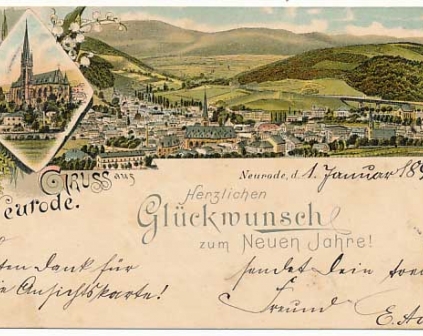 Gruss aus
Neurode.
Neurode, d. 1. Januar 189
Herzlichen
Glückwunsch
zum Neuen Jahre!
ten Dank für
e Ansichtskarte!
sendet Dein treuer
Freund